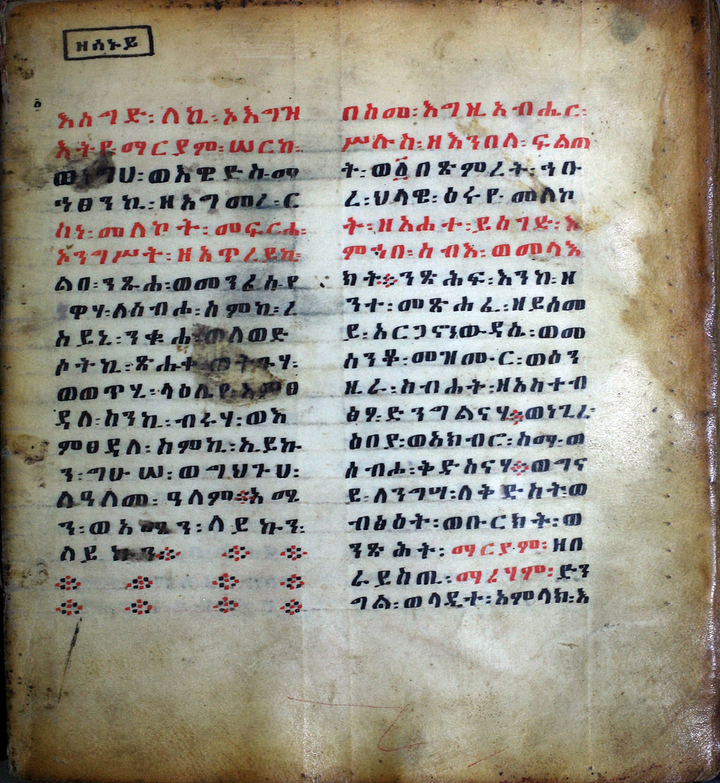 ዘሰኑይ
እሰግድ፡ለኪ፡ኦእግዝ
እትየ፡ማርያም፡ሠርከ፡
ወነግህ፡ወእዌድስ፡ማ
ኅፀንኪ፡ዘእግመረ፡ር
ስነ፡መለኮት፡መፍርሔ፡
ኦንግሥት፡ዘእጥረይኪ፡
ልበ፡ንጹሐ፡ወመንፈሰየ
ዋሃ፡ለሰብሖ፡ስምኪ፡ረ
ስይኒ፡ንቁሐ፡ወለወድ
ሶትኪ፡ጽሒተ፡ወትጉሃ፡
ወወጥሂ፡ላዕሌየ፡እምፀ
ዳለ፡ስንኪ፡ብሩሃ፡ወእ
ምፀዳለ፡ስምኪ፡ኢይኩ
ን፡ግሁሠ፡ወግህጉሀ፡
ለዓለመ፡ዓለም፨አሜ
ን፡ወአሜን፡ለይኩን፡
ለይኩን፨
በስመ፡እግዚአብሔር፡
ሥሉስ፡ዘእንበለ፡ፍልጠ
ት፡ወ፩በጽምረት፡ኀቡ
ረ፡ህላዌ፡ዕሩየ፡መለኮ
ት፡ዘአሐተ፡ይሰግድ፡እ
ምኀበ፡ሰብእ፡ወመላእ
ክት፨ንጽሕፍ፡እንከ፡ዘ
ንተ፡መጽሐፈ፡ዘይሰመ
ይ፡አርጋኖነ፡ውዳሴ፡ወመ
ሰንቆ፡መዝሙር፡ወዕን
ዚራ፡ስብሐት፡ዘአስተብ
ፅዖ፡ድንግልናሃ፨ወነጊረ
ዕበያ፡ወአክብሮ፡ስማ፡ወ
ሰብሖ፡ቅድስናሃ፨ወግና
ይ፡ለንግሣ፡ለቅድስት፡ወ
ብፅዕት፡ወቡርክት፡ወ
ንጽሕት፡ማርያም፡ዘበ
ራይስጢ፡ማሪሃም፡ድን
ግል፡ወላዲተ፡አምላክ፡እ